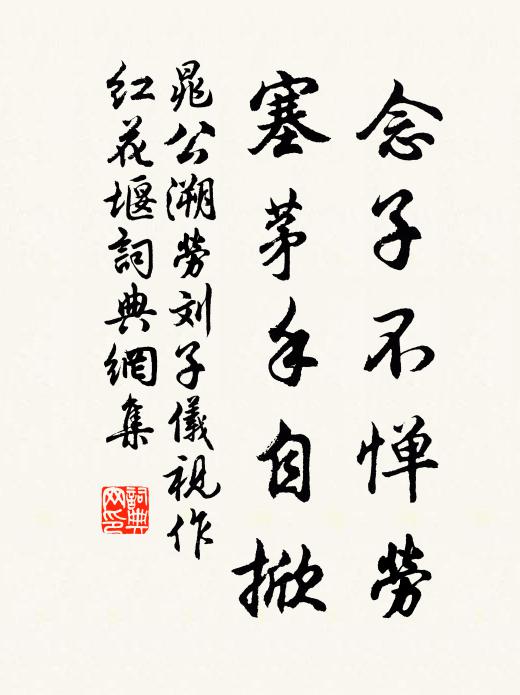 念子不惮勞
塞茅手自掀
晁公溯勞刘子儀視作
红花堰詞典網集
詞典
网印